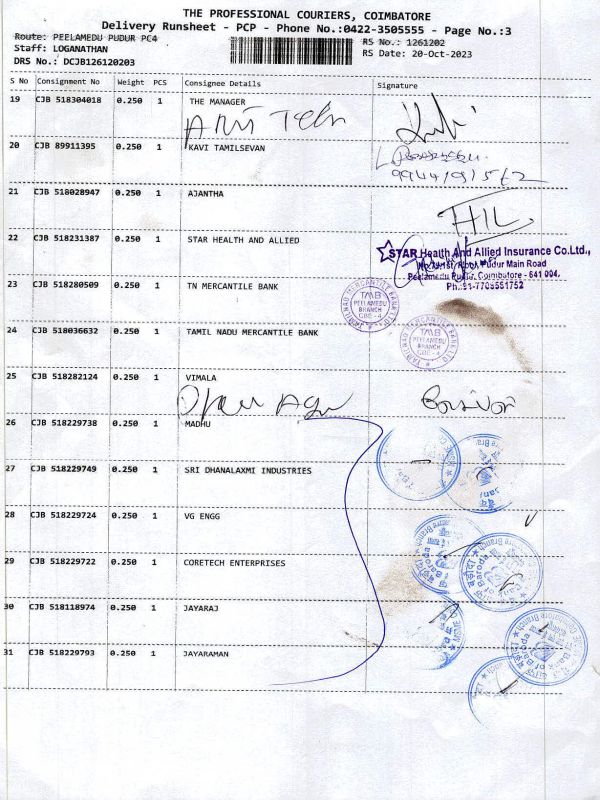 THE PROFESSIONAL COURIERS, COIMBATORE
Delivery Runsheet - PCP - Phone No.:0422-3505555 - Page No.:3
Route: PEELAMEDU PUDUR PC4
RS No.: 1261202
Staff: LOGANATHAN
RS Date: 20-Oct-2023
DRS No.: DCJB126120203
S No Consignment No Weight PCS Consignee Details Signature
19 CJB 518304018 0.250 1 THE MANAGER
20 CJB 89911395 0.250 1 KAVI TAMILSEVAN
21 CJB 518028947 0.250 1 AJANTHA
HIL
22 CJB 518231387 0.250 1 STAR HEALTH AND ALLIED
STAR Health And Allied Insurance Co.Ltd.,
Pudur Main Road
Peelamedu Pudur, Coimbatore - 641 004.
Ph.:91-7708551752
23 CJB 518280509 0.250 1 TN MERCANTILE BANK
TAMILNAD MERCANTILE BANK LTD
TMB
PEELAMEDU
BRANCH
CBE - 4
24 CJB 518036632 0.250 1 TAMIL NADU MERCANTILE BANK
TAMILNAD MERCANTILE BANK LTD
TMB
PEELAMEDU
BRANCH
CBE - 4
25 CJB 518282124 0.250 1 VIMALA
26 CJB 518229738 0.250 1 MADHU
27 CJB 518229749 0.250 1 SRI DHANALAXMI INDUSTRIES
28 CJB 518229724 0.250 1 VG ENGG
29 CJB 518229722 0.250 1 CORETECH ENTERPRISES
Bank of Baroda
30 CJB 518118974 0.250 1 JAYARAJ
31 CJB 518229793 0.250 1 JAYARAMAN
Bank of Baroda